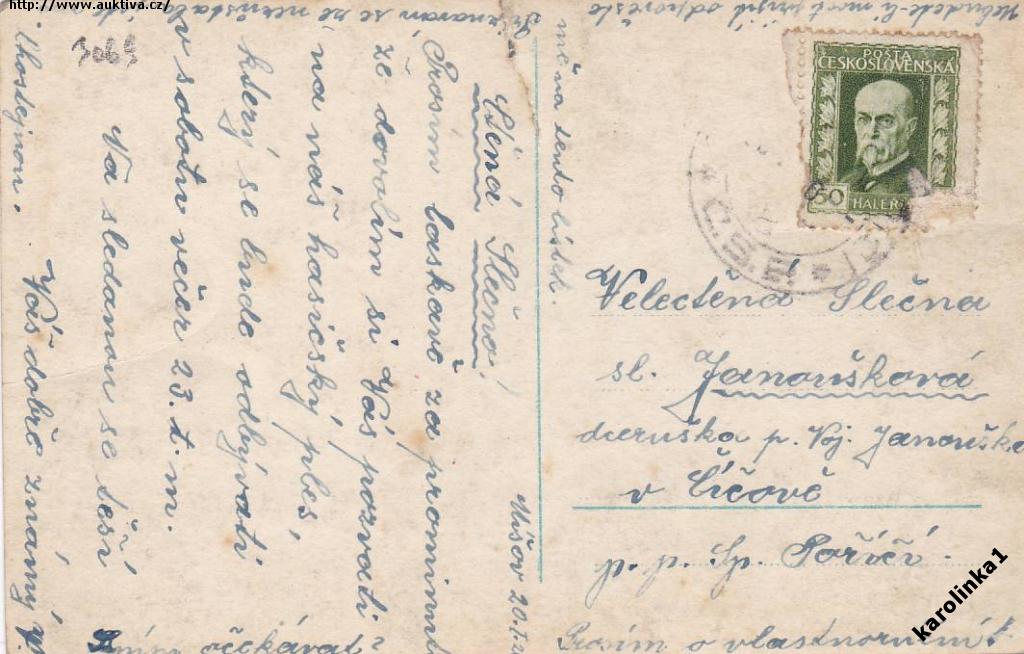 http://www.auktiva.cz/
3069
Ctěná Slečno!
Prosím laskavě za prominutí
že dovolím si Vás pozvati
na náš hasičský ples,
který se bude odbývati
v sobotu večer 23. t. m.
Na sledanou se těší
Váš dobře známý
lhostejnou.
očekávat
mě na tento lístek.
Nebudete-li moct přijít odpovězte
POŠTA
ČESKOSLOVENSKÁ
50 HALER
Velectěná Slečna
sl. Janoušková
dceruška p. Voj. Janouška
v Číčově
p. p. Sp. Poříčí
Prosím o vlastnoruční
karolinka1